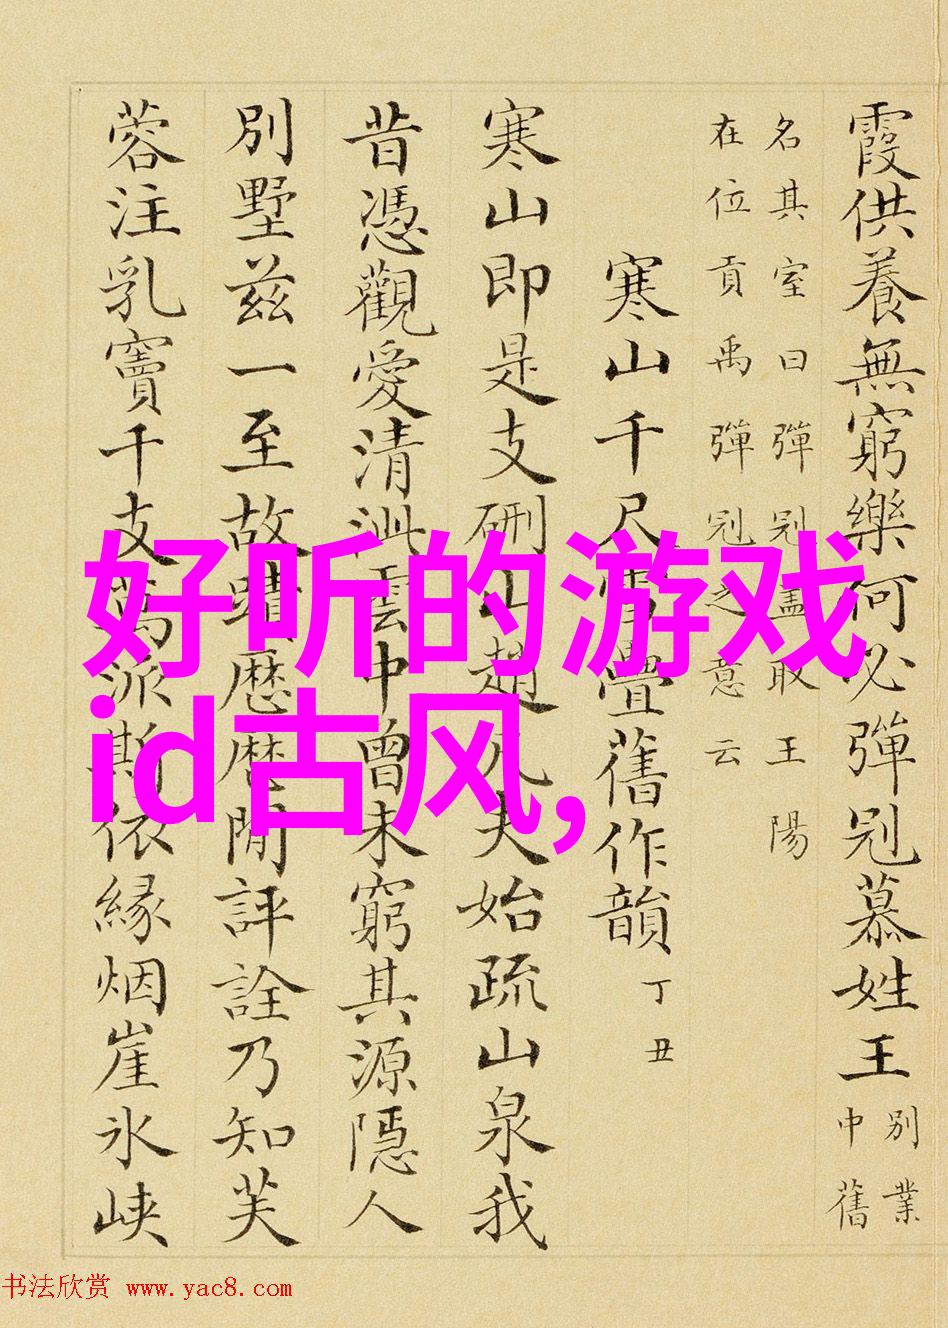 霞供養無窮樂何必彈冠慕姓王
別業
中舊
名其室曰彈冠盖取王陽
在位貢禹彈冠之意云
寒山千尺雪疊舊作韻 丁丑
寒山即是支硎山趙凡夫始疏山泉我
昔憑觀愛清泚雲中曾未窮其源隱人
別墅兹一至故蹟歷歷閒評詮乃知芙
蓉注乳竇千支萬派斯依緣烟崖氷峽
好听的游戏
id古风,
书法欣赏 www.yac8.com